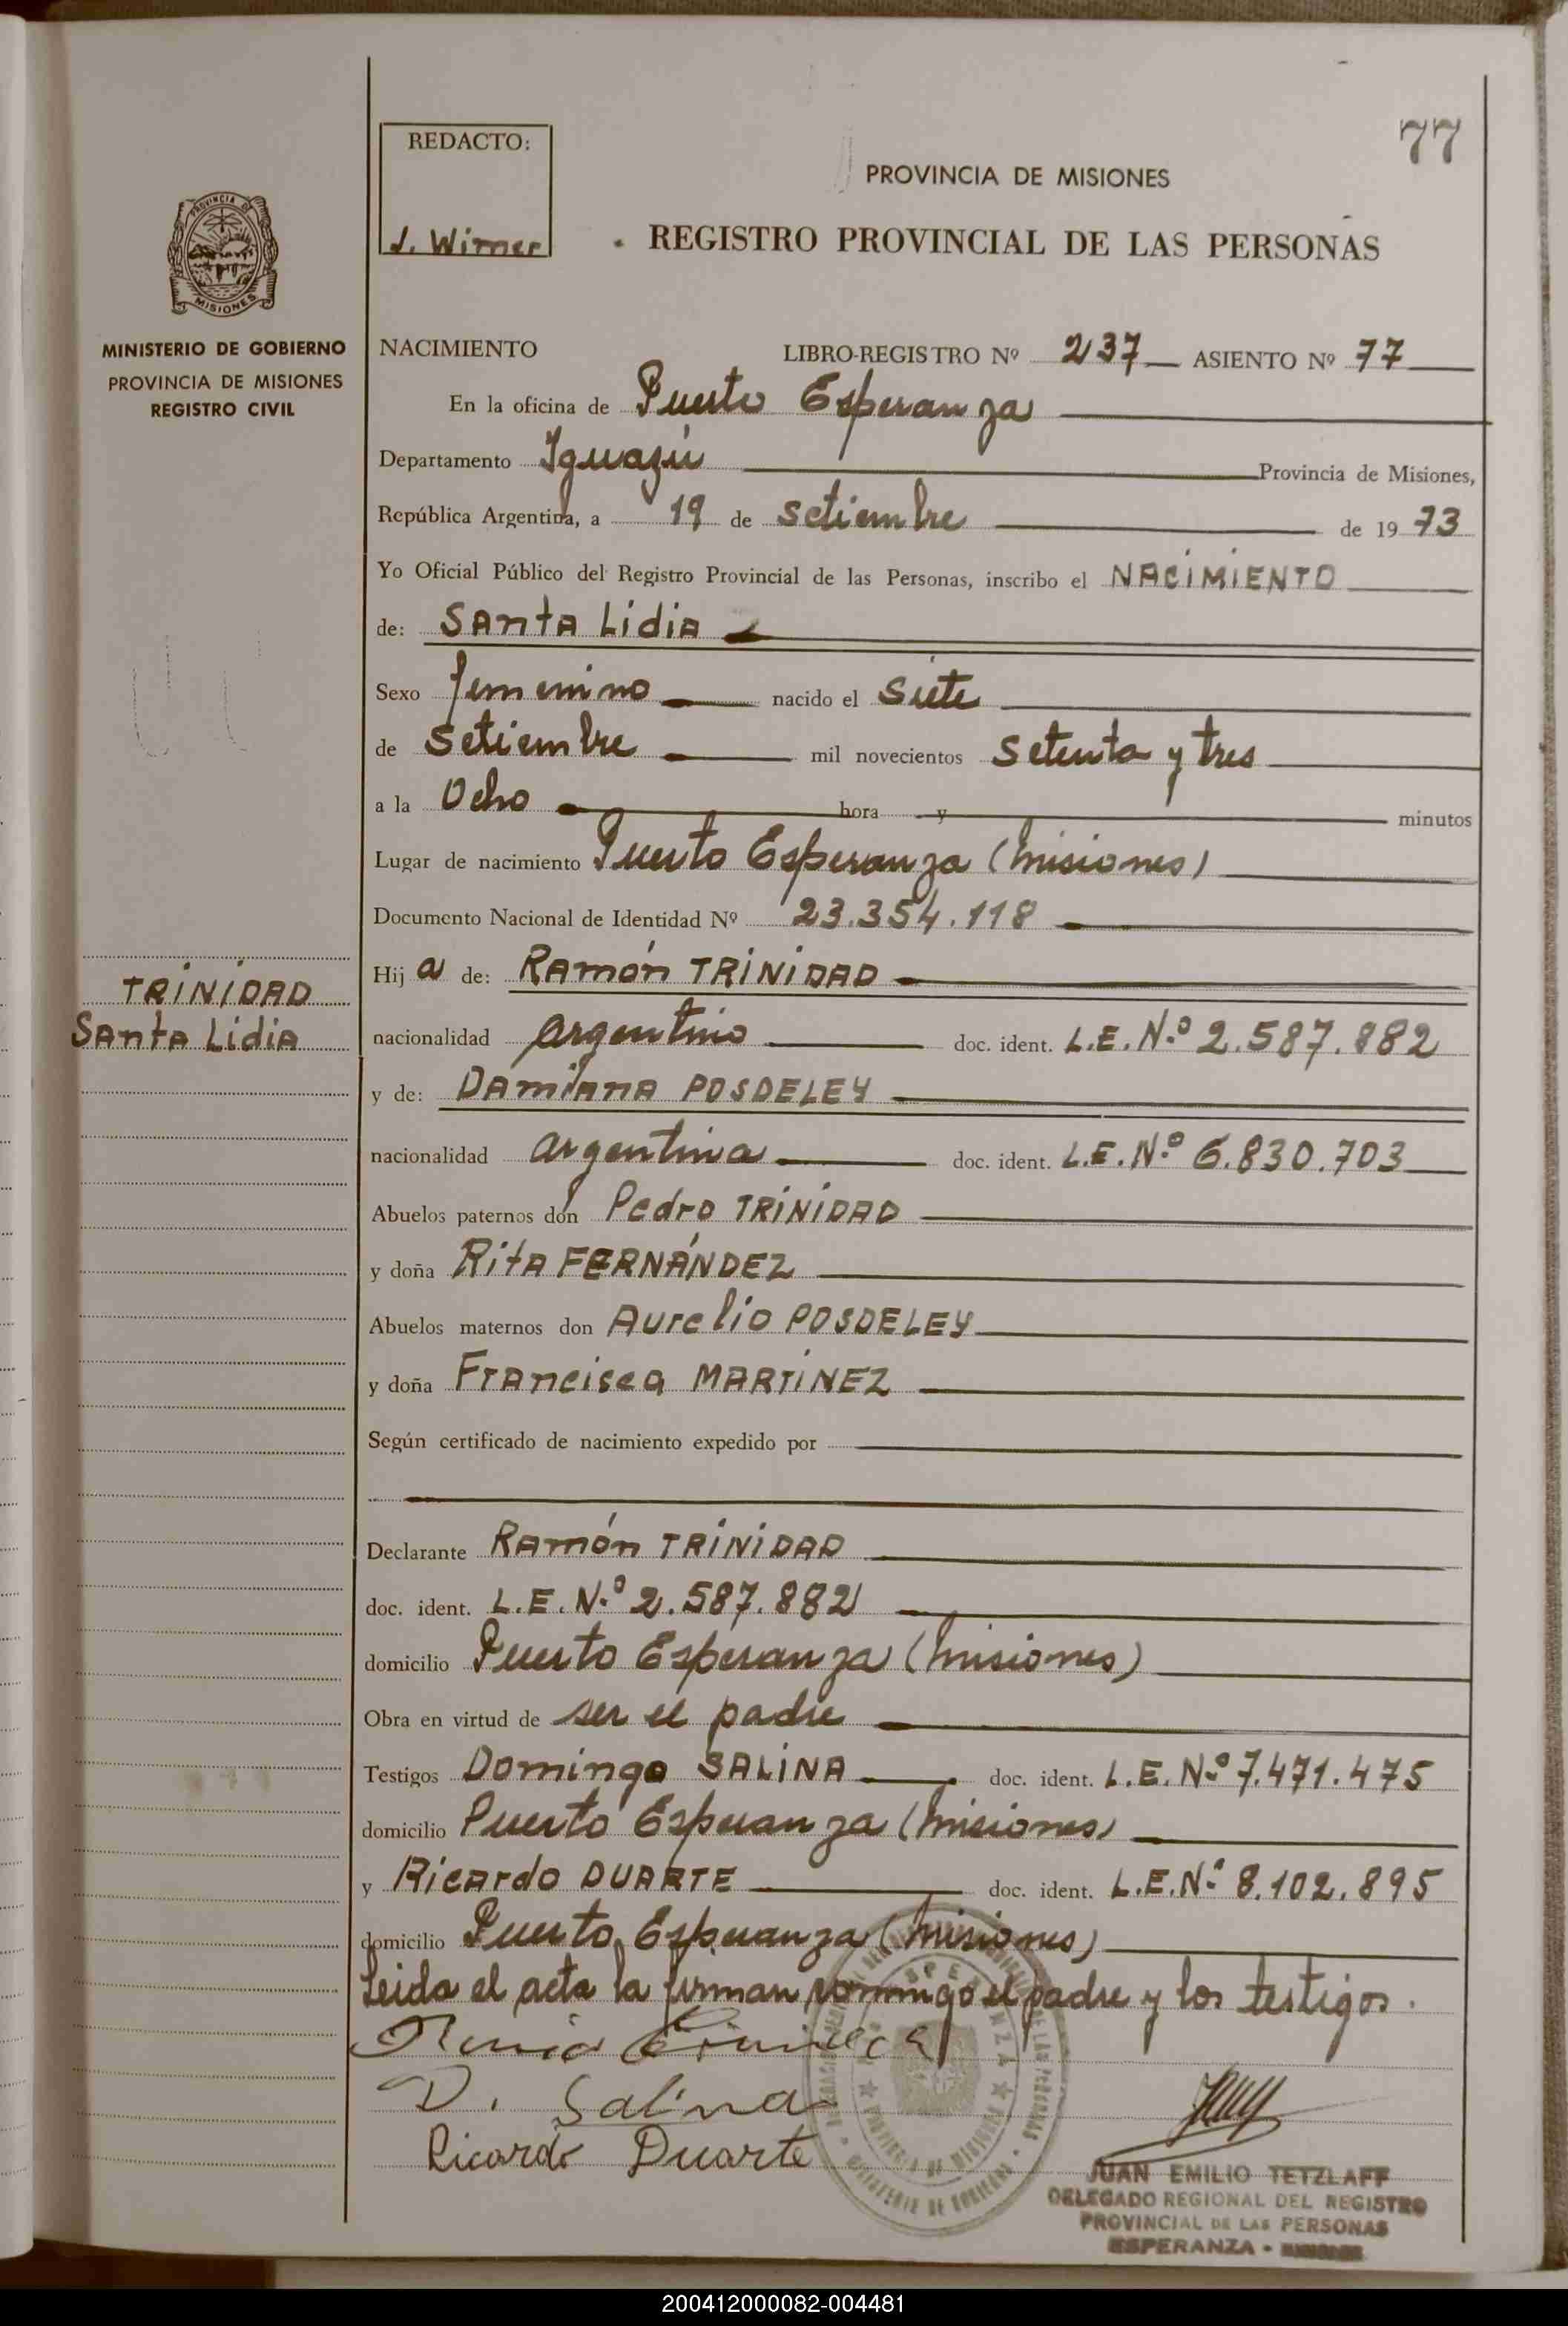 77
REDACTO:
J. Wirner
PROVINCIA DE MISIONES
REGISTRO PROVINCIAL DE LAS PERSONAS
PROVINCIA DE
MISIONES
MINISTERIO DE GOBIERNO
PROVINCIA DE MISIONES
REGISTRO CIVIL
NACIMIENTO LIBRO-REGISTRO Nº 237 ASIENTO Nº 77
En la oficina de Puerto Esperanza
Departamento Iguazú Provincia de Misiones,
República Argentina, a 19 de setiembre de 1973
Yo Oficial Público del Registro Provincial de las Personas, inscribo el NACIMIENTO
de: Santa Lidia
Sexo femenino nacido el siete
de setiembre mil novecientos setenta y tres
a la Ocho hora y minutos
Lugar de nacimiento Puerto Esperanza (Misiones)
Documento Nacional de Identidad Nº 23.354.118
Hija de: Ramón TRINIDAD
TRINIDAD
Santa Lidia
nacionalidad argentino doc. ident. L.E.N.º 2.587.882
y de: Damiana POSDELEY
nacionalidad argentina doc. ident. L.E.N.º 6.830.703
Abuelos paternos don Pedro TRINIDAD
y doña Rita FERNÁNDEZ
Abuelos maternos don Aurelio POSDELEY
y doña Francisca MARTINEZ
Según certificado de nacimiento expedido por
Declarante Ramón TRINIDAD
doc. ident. L.E.N.º 2.587.882
domicilio Puerto Esperanza (Misiones)
Obra en virtud de ser el padre
Testigos Domingo SALINA doc. ident. L.E.Nº 7.471.475
domicilio Puerto Esperanza (Misiones)
y Ricardo DUARTE doc. ident. L.E.N.º 8.102.895
domicilio Puerto Esperanza (Misiones)
Leida el acta la firman conmigo el padre y los testigos.
D. Salina
Ricardo Duarte
JUAN EMILIO TETZLAFF
DELEGADO REGIONAL DEL REGISTRO
PROVINCIAL DE LAS PERSONAS
ESPERANZA -
200412000082-004481